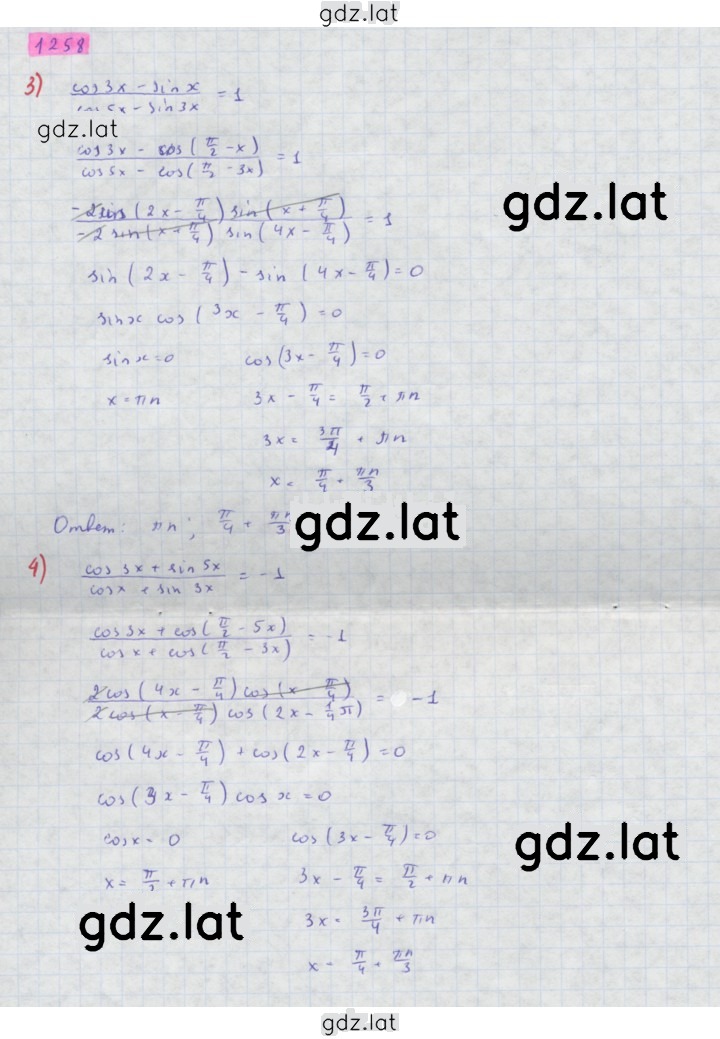 gdz.lat
1258
3) (cos 3x - sin x)/(cos 5x - sin 3x) = 1
gdz.lat
(cos 3x - cos(π/2 - x))/(cos 5x - cos(π/2 - 3x)) = 1
gdz.lat
(-2 sin(2x - π/4) sin(x + π/4))/(-2 sin(x + π/4) sin(4x - π/4)) = 1
sin(2x - π/4) - sin(4x - π/4) = 0
sin x cos(3x - π/4) = 0
sin x = 0 cos(3x - π/4) = 0
x = πn 3x - π/4 = π/2 + πn
3x = 3π/4 + πn
x = π/4 + πn/3
Ответ: πn; π/4 + πn/3
gdz.lat
4) (cos 3x + sin 5x)/(cos x + sin 3x) = -1
(cos 3x + cos(π/2 - 5x))/(cos x + cos(π/2 - 3x)) = -1
(2 cos(4x - π/4) cos(x - π/4))/(2 cos(x - π/4) cos(2x - 1/4 π)) = -1
cos(4x - π/4) + cos(2x - π/4) = 0
cos(3x - π/4) cos x = 0
cos x = 0 cos(3x - π/4) = 0
gdz.lat
x = π/2 + πn 3x - π/4 = π/2 + πn
gdz.lat
3x = 3π/4 + πn
x = π/4 + πn/3
gdz.lat